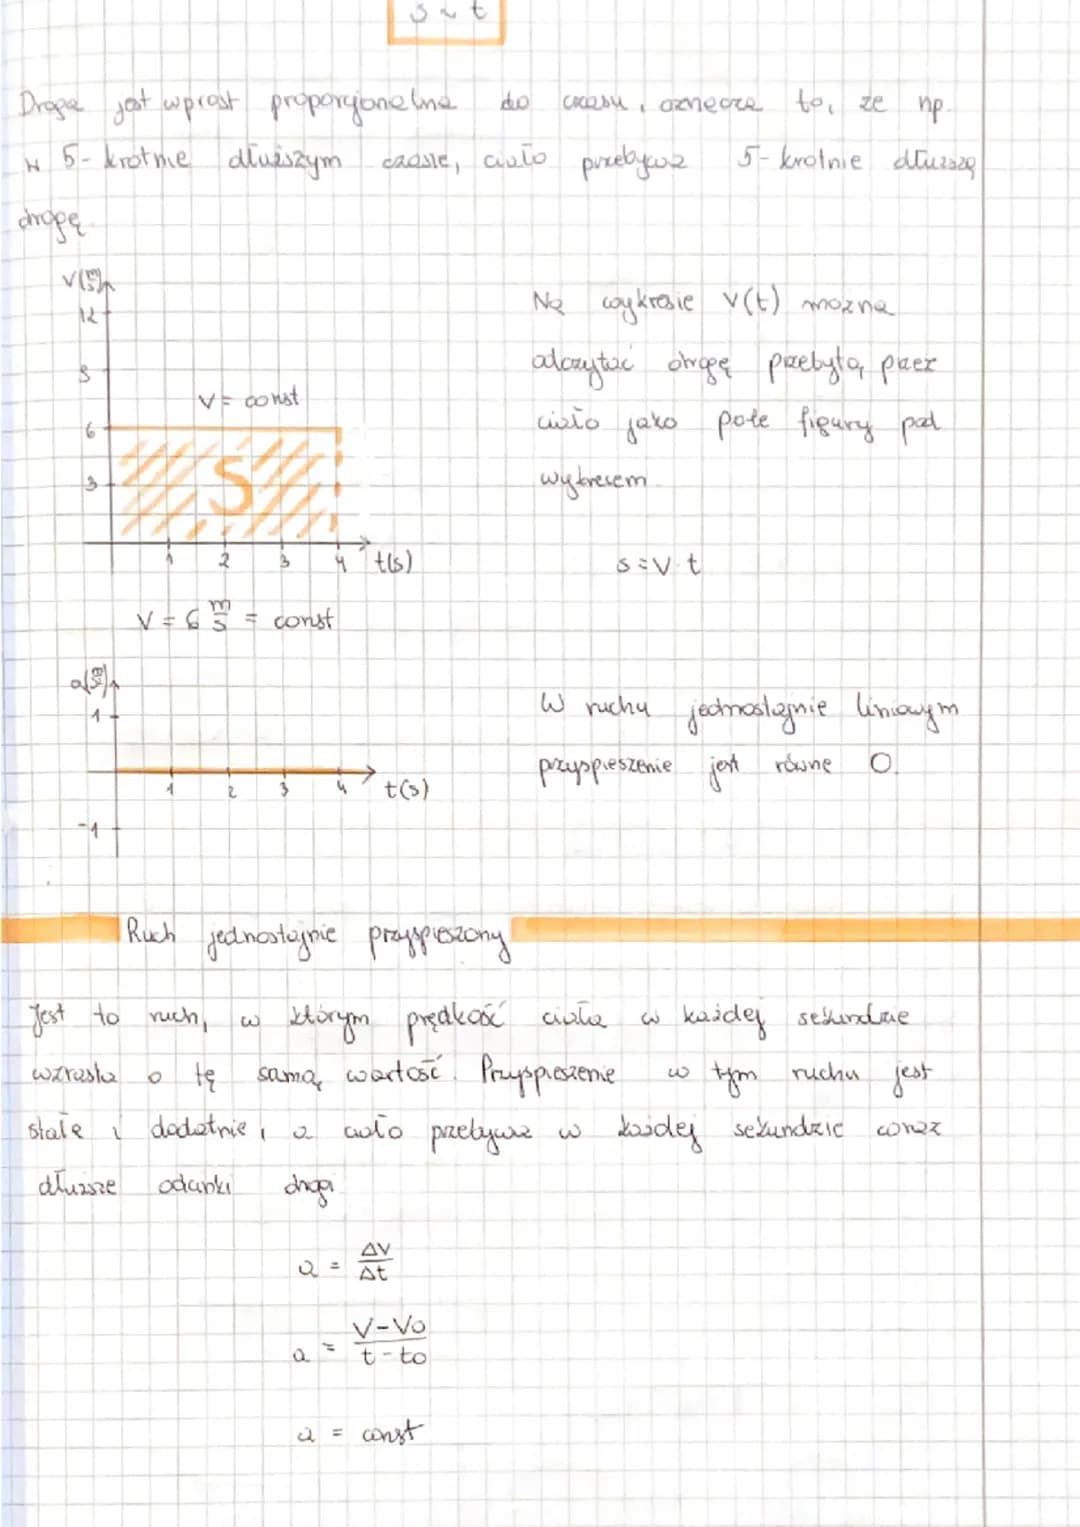 s ~ t
Droga jest wprost proporcjonalna do czasu, oznacza to, że np.
w 5-krotnie dłuższym czasie, ciało przebywa 5-krotnie dłuższą
drogę.
V(m/s)
12
9
V = const
6
S
3
1 2 3 4 t(s)
V = 6 m/s = const
Na wykresie V(t) można
odczytać drogę przebytą przez
ciało jako pole figury pod
wykresem.
s = V · t
a(m/s²)
1
1 2 3 4 t(s)
-1
W ruchu jednostajnie liniowym
przyspieszenie jest równe 0.
Ruch jednostajnie przyspieszony
Jest to ruch, w którym prędkość ciała w każdej sekundzie
wzrasta o tę samą wartość. Przyspieszenie w tym ruchu jest
stałe i dodatnie, a ciało przebywa w każdej sekundzie coraz
dłuższe odcinki drogi
a = ΔV/Δt
a = V-Vo/t-to
a = const